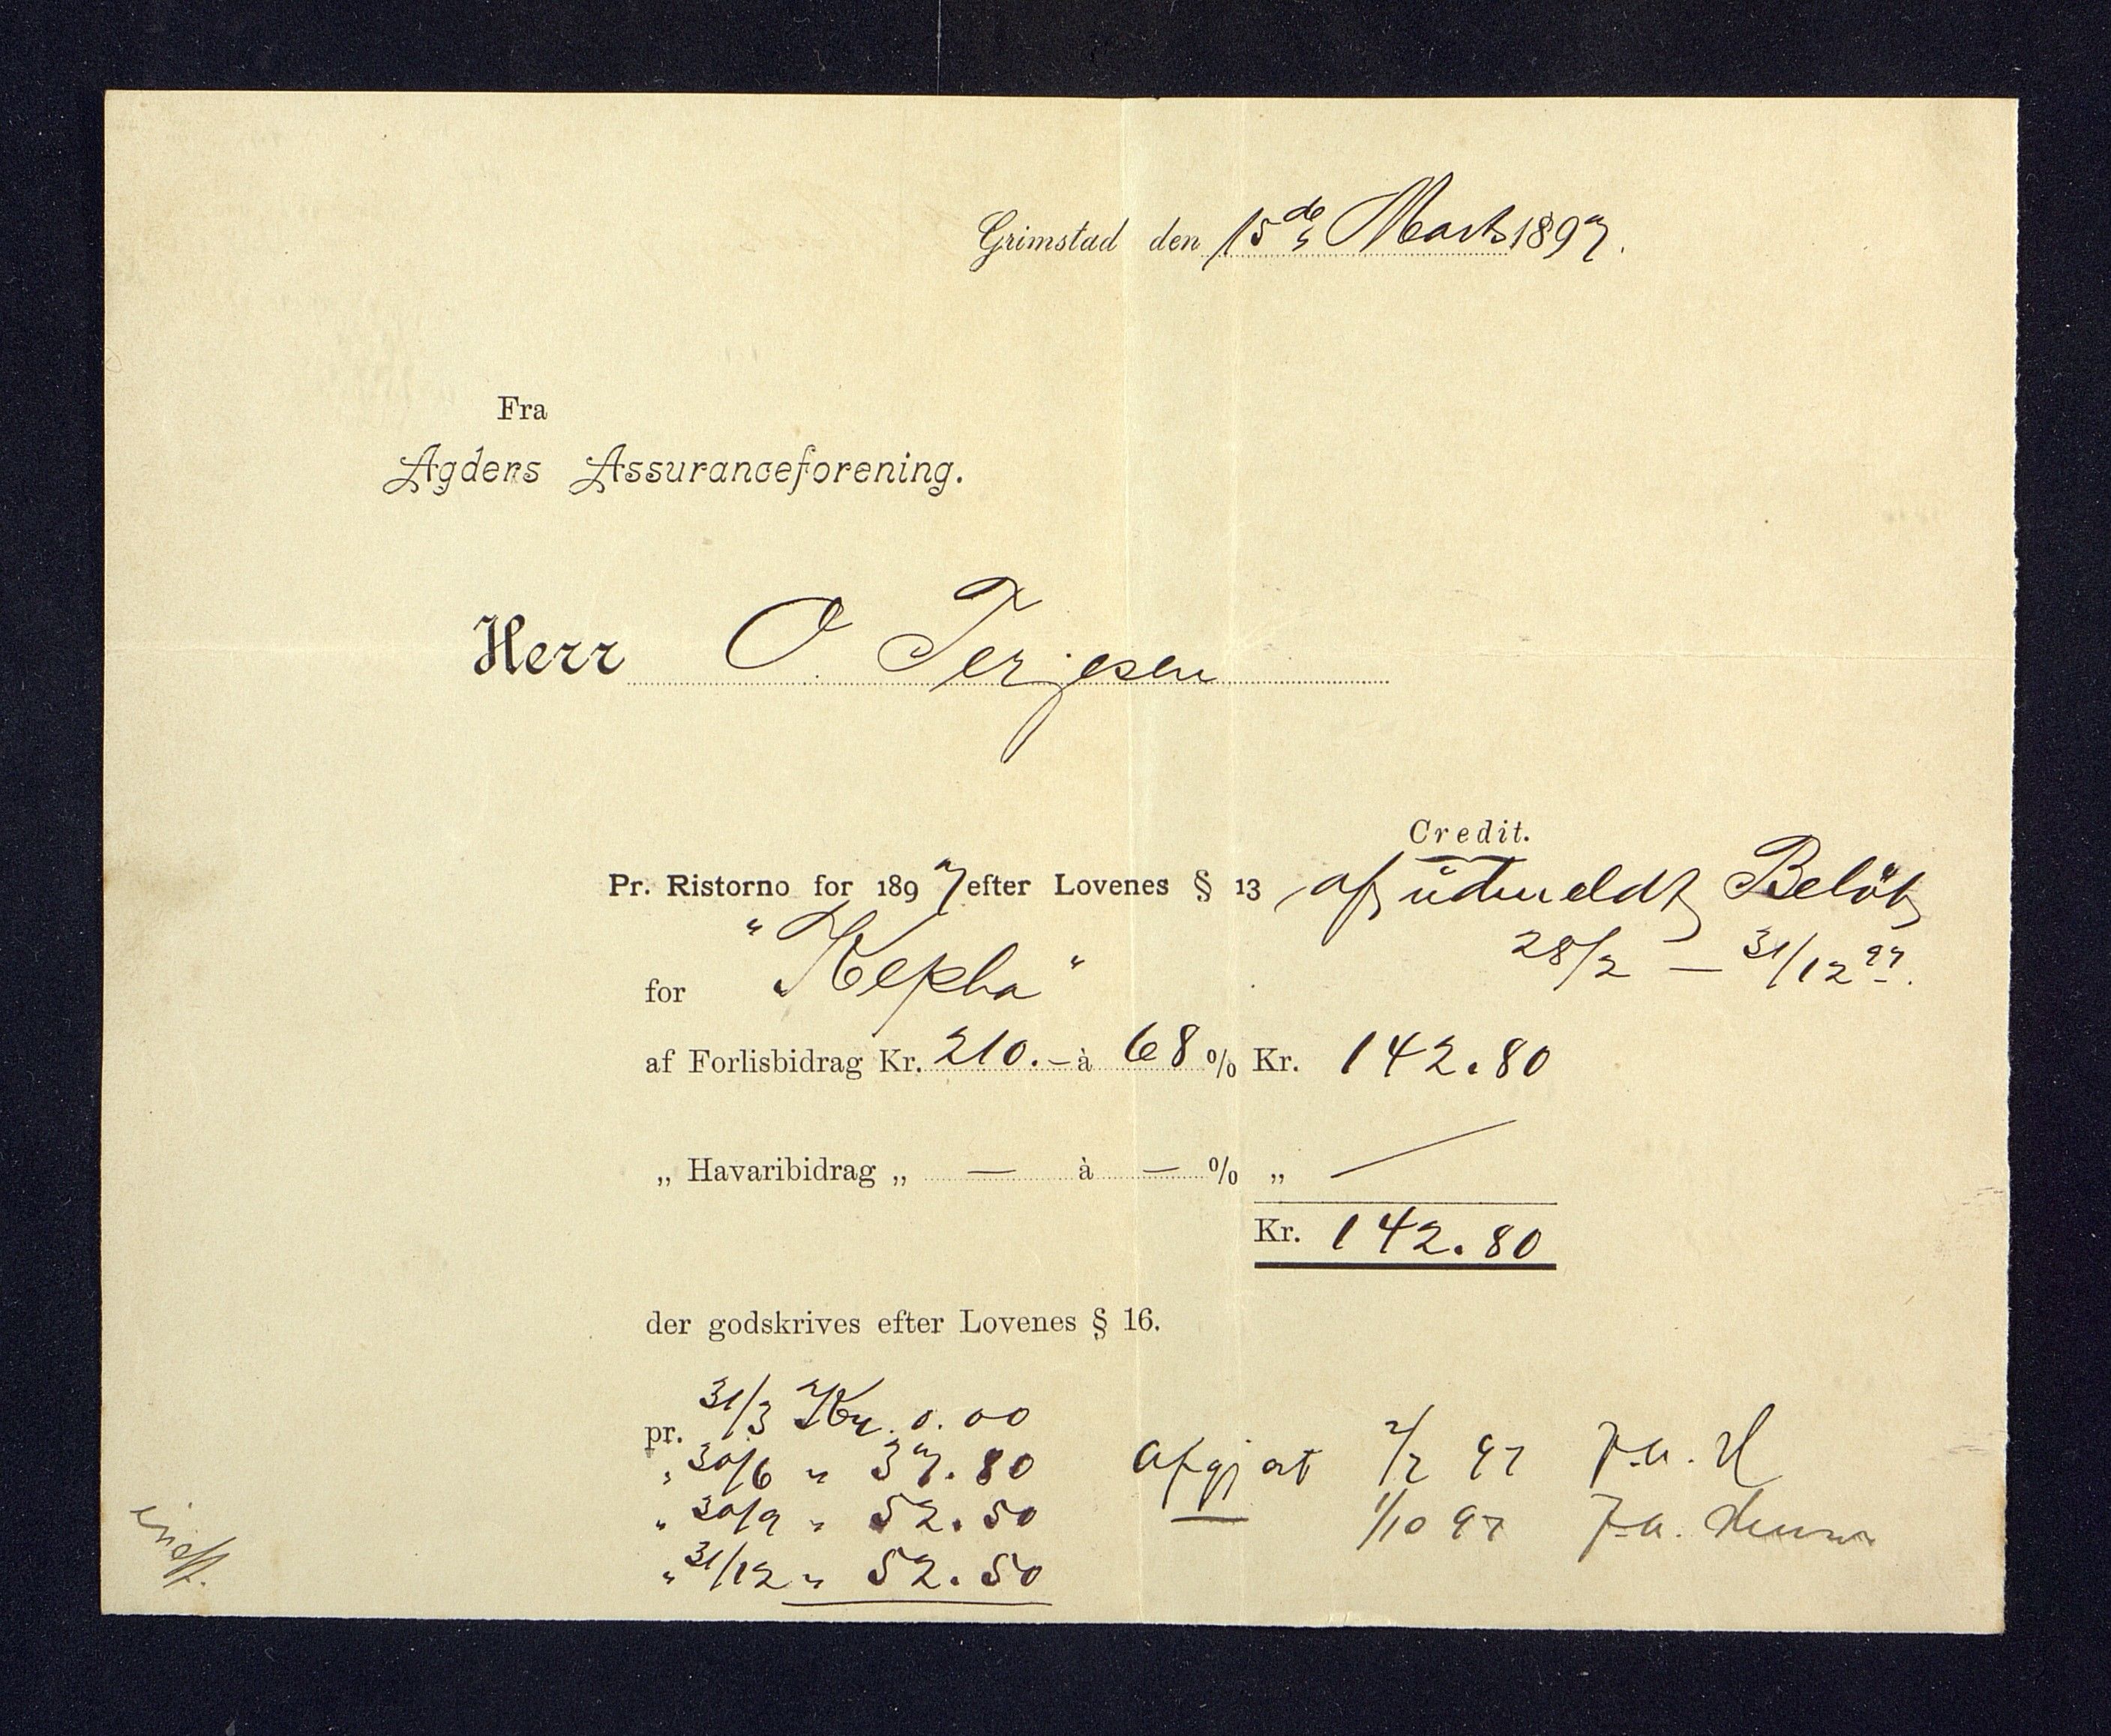 Grimstad den 15de Marts 1897.
Fra
Agders Assuranceforening.
Herr O Terjesen
Credit.
Pr. Ristorno for 1897 efter Lovenes § 13 af udmeldt Beløb
28/2 — 31/12 97.
for "Kepha"
af Forlisbidrag Kr. 210.- à 68 % Kr. 142.80
„ Havaribidrag „ — à — % „ —
Kr. 142.80
der godskrives efter Lovenes § 16.
pr. 31/3 Kr. 0.00
„ 30/6 „ 37.80 afgjort 2/7 97 F.a. H
„ 30/9 „ 52.50 1/10 97 F.a.
„ 31/12 „ 52.50